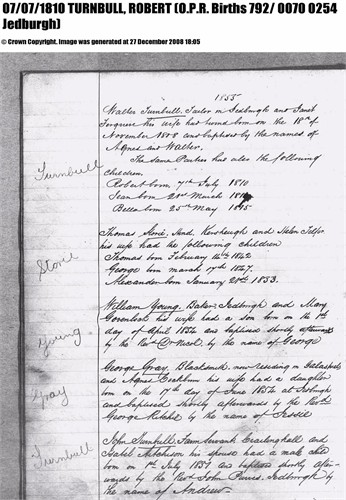 07/07/1810 TURNBULL, ROBERT (O.P.R. Births 792/ 0070 0254
Jedburgh)
© Crown Copyright, Image was generated at 27 December 2008 18:05
1855
Walter Turnbull, Tailor in Jedburgh and Janet
his wife had twins born on the 18th of
November 1808 and baptised by the names of
Agnes and Walter.
The same Parties had also the following
Children.
Robert born 7th July 1810
Jean born 21st March
Bella born 25th May 1815
Turnbull
Thomas Storie, Hind, and Helen Telfer
his wife had the following children
Thomas born February 14th 1842
George born march 17th 1847.
Alexander born January 21st 1853.
Storie
William Young, Baker, Jedburgh and Mary
his wife had a son born on the
day of April 1854 and baptised shortly afterwards
by the Revd Dr Nicol by the name of George
Young
George Gray, Blacksmith now residing in Galashiels
and Agnes Cockburn his wife had a daughter
born on the 17th day of June 1854 at Jedburgh
and baptised shortly afterwards by the Revd
George Ritchie by the name of Jessie
Gray
John Turnbull, Farm Servant and
Isabel Aitchison his spouse had a male child
born on 1st July 1851 and baptised shortly after-
wards by the Revd John Purves, Jedburgh by
the name of Andrew
Turnbull